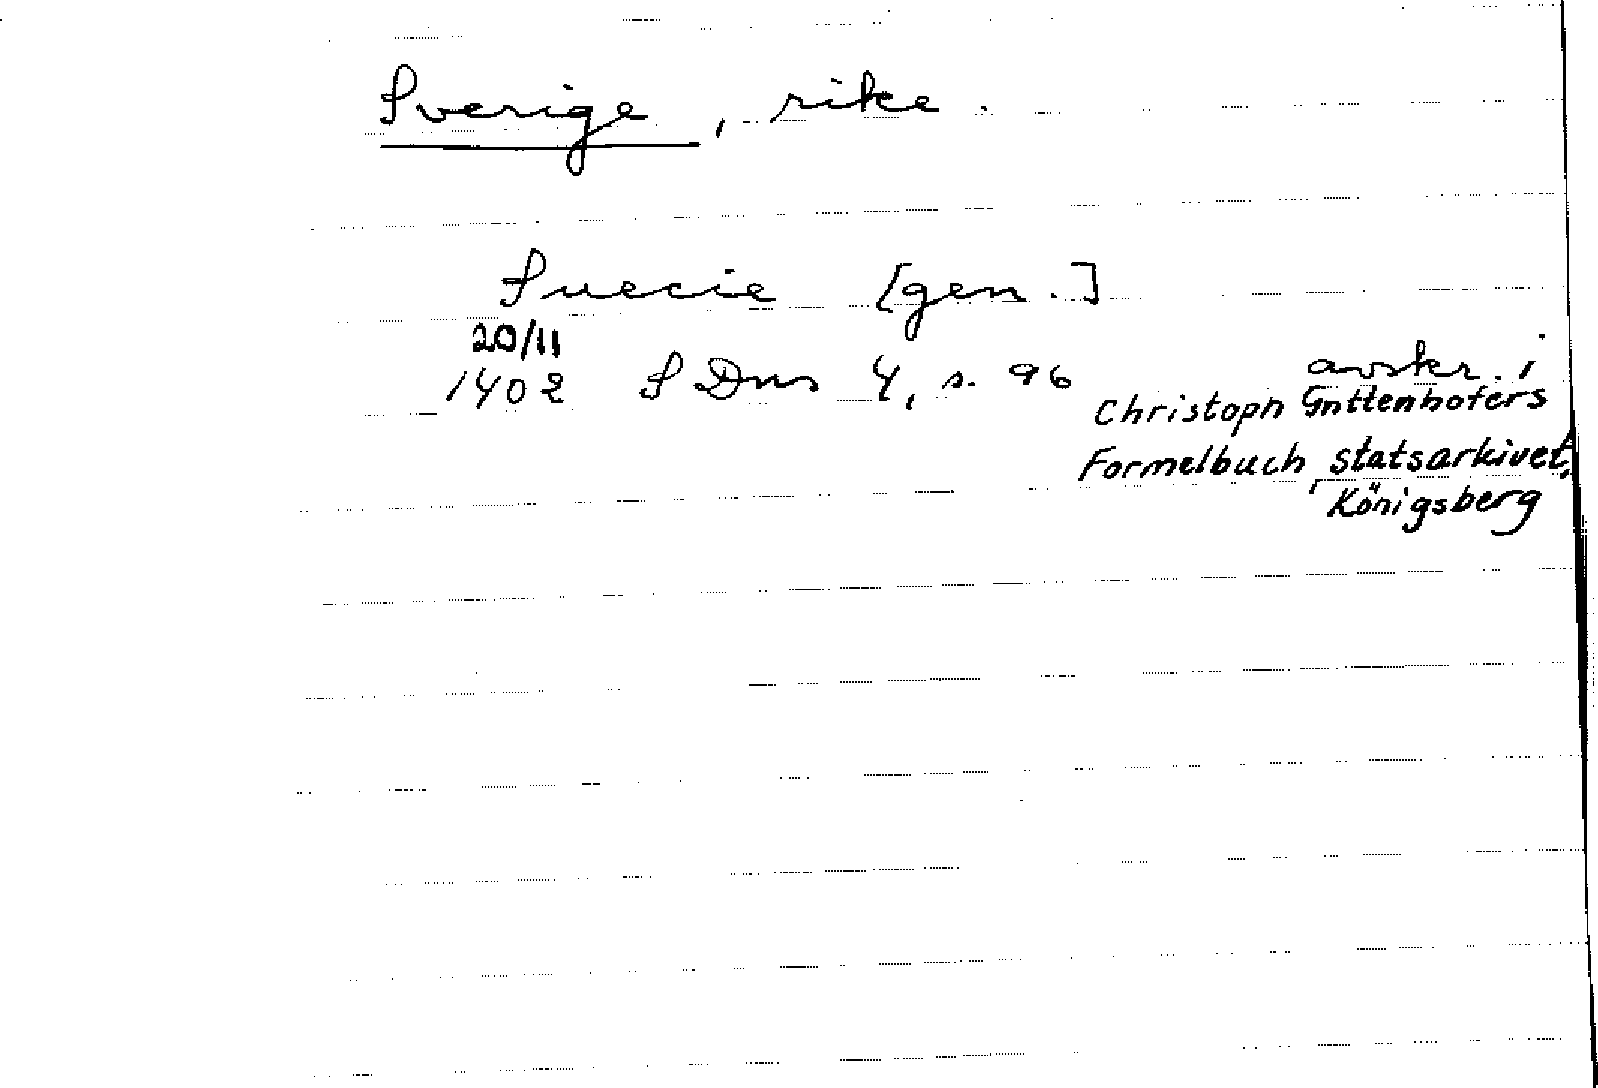 Sverige, rike.
Suecie [gen.]
20/11
1402 SDns 4, s. 96 avskr. i
Christoph Gnttenhofers
Formelbuch, statsarkivet,
Königsberg